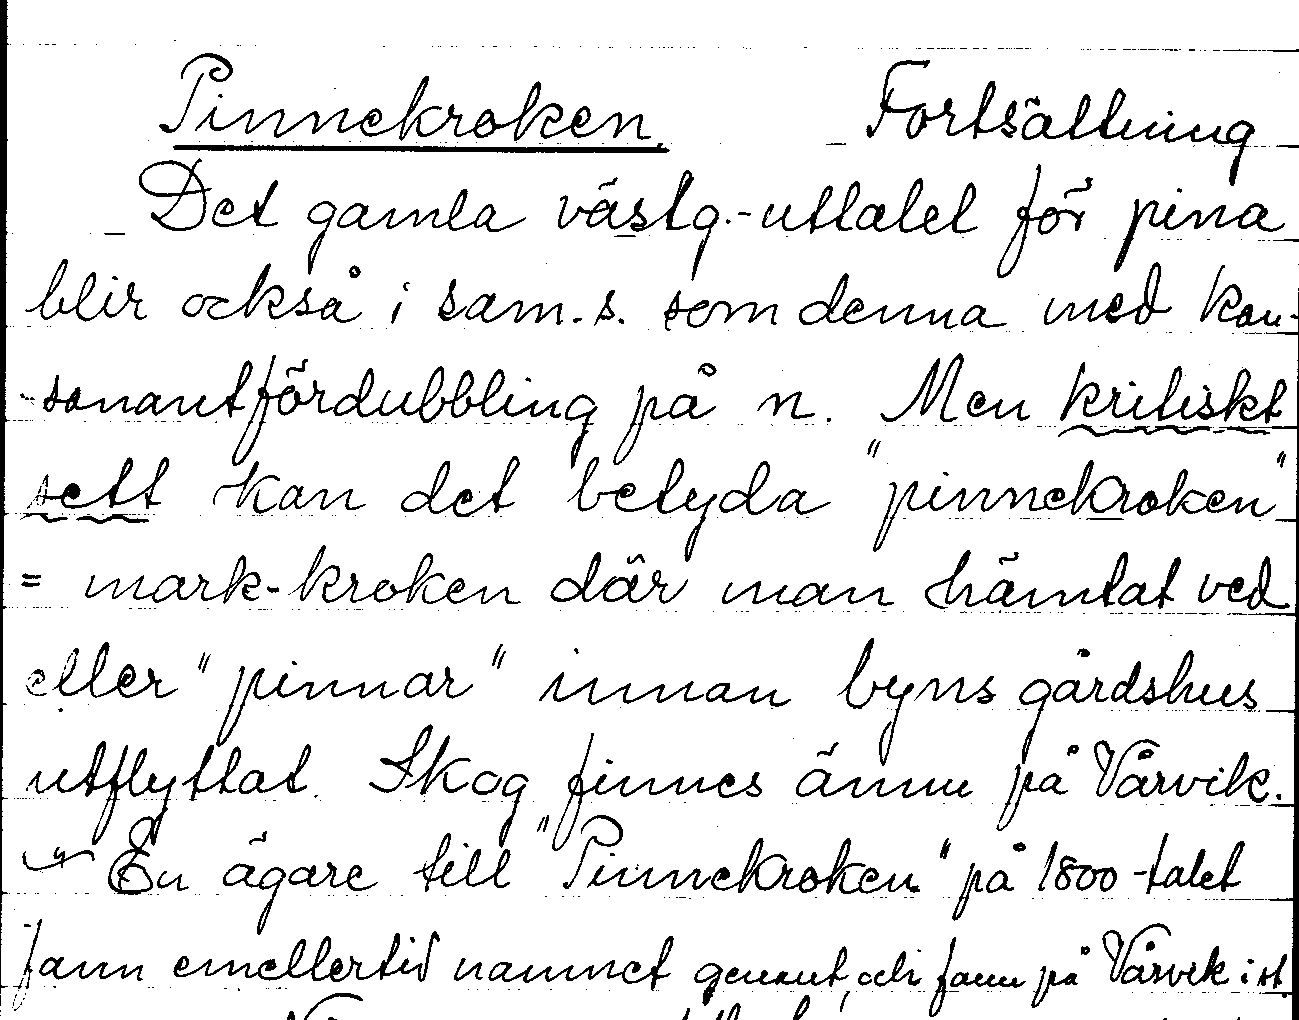 Pinnekroken. Fortsättning
Det gamla västg.-uttalet för pina
blir också i sam.s. som denna med kon-
-sonantfördubbling på n. Men kritiskt
sett kan det betyda "pinnekroken"
= mark-kroken där man hämtat ved
eller "pinnar" innan byns gårdshus
utflyttat. Skog finnes ännu på Vårvik.
En ägare till "Pinnekroken" på 1800-talet
fann emellertid namnet genant, och fann på Vårvik i st.